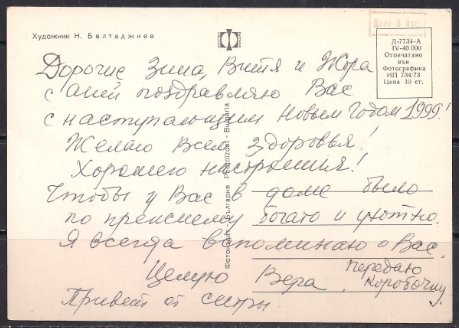 Художник Н. Балтаджиев
Д-7734-А
IV-40 000
Отпечатано
във
Фотографика
ИП 734/73
Цена 10 ст.
Дорогие Зина, Витя и Жора
с поздравляю Вас
с наступающим Новым Годом 1999!
Желаю Всем здоровья!
Хорошего настроения!
Чтобы у Вас в доме было
по прежнему богато и уютно.
Я всегда вспоминаю о Вас.
Целую Вера. Передаю
коробочку
Привет от сестры.
България Bulgaria